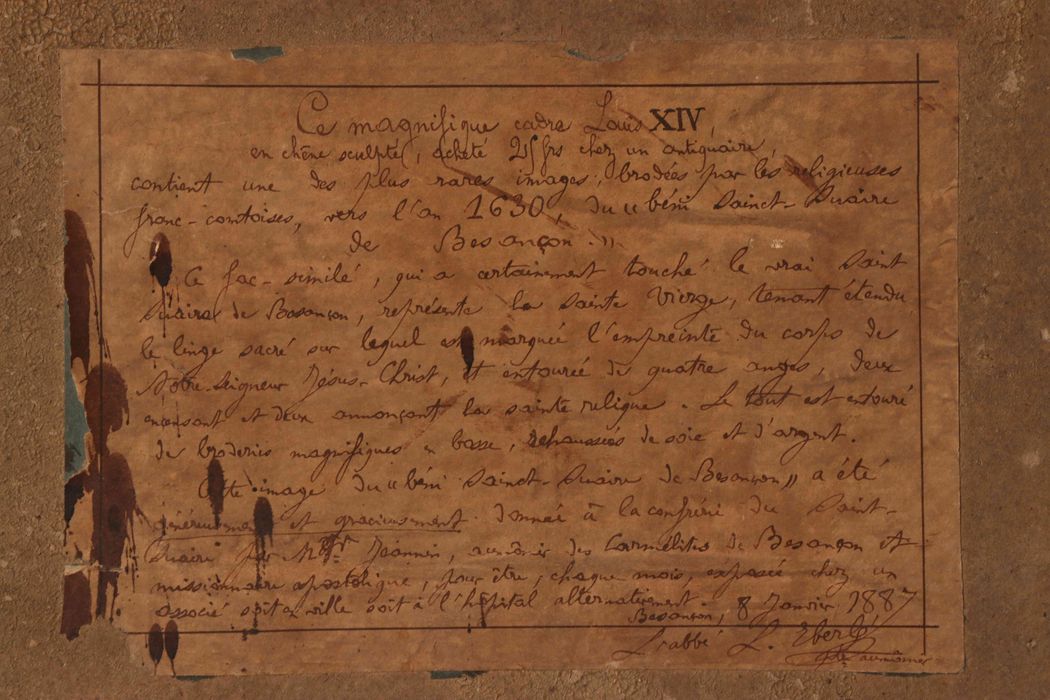 Ce magnifique cadre Louis XIV,
en chêne sculpté, acheté 25 frs chez un antiquaire,
contient une des plus rares images, brodées par les religieuses
franc-comtoises, vers l'an 1630, du "béni Sainct-Suaire
de Besançon."
Ce fac-similé, qui a certainement touché le vrai Saint
Suaire de Besançon, représente la Sainte Vierge, tenant étendu
le linge sacré sur lequel est marquée l'empreinte du corps de
Notre Seigneur Jésus-Christ, et entouré de quatre anges, deux
encensant et deux annonçant la sainte relique. Le tout est entouré
de broderies magnifiques en bosse, rehaussées de soie et d'argent.
Cette image du "béni Sainct-Suaire de Besançon" a été
généreusement et gracieusement donnée à la confrérie du Saint-
Suaire par Jeannin, aumônier des Carmélites de Besançon et
missionnaire apostolique, pour être, chaque mois, exposée chez un
associé soit en ville soit à l'hôpital alternativement.
Besançon, 8 Janvier 1887
L'abbé L. Eberlé
aumônier